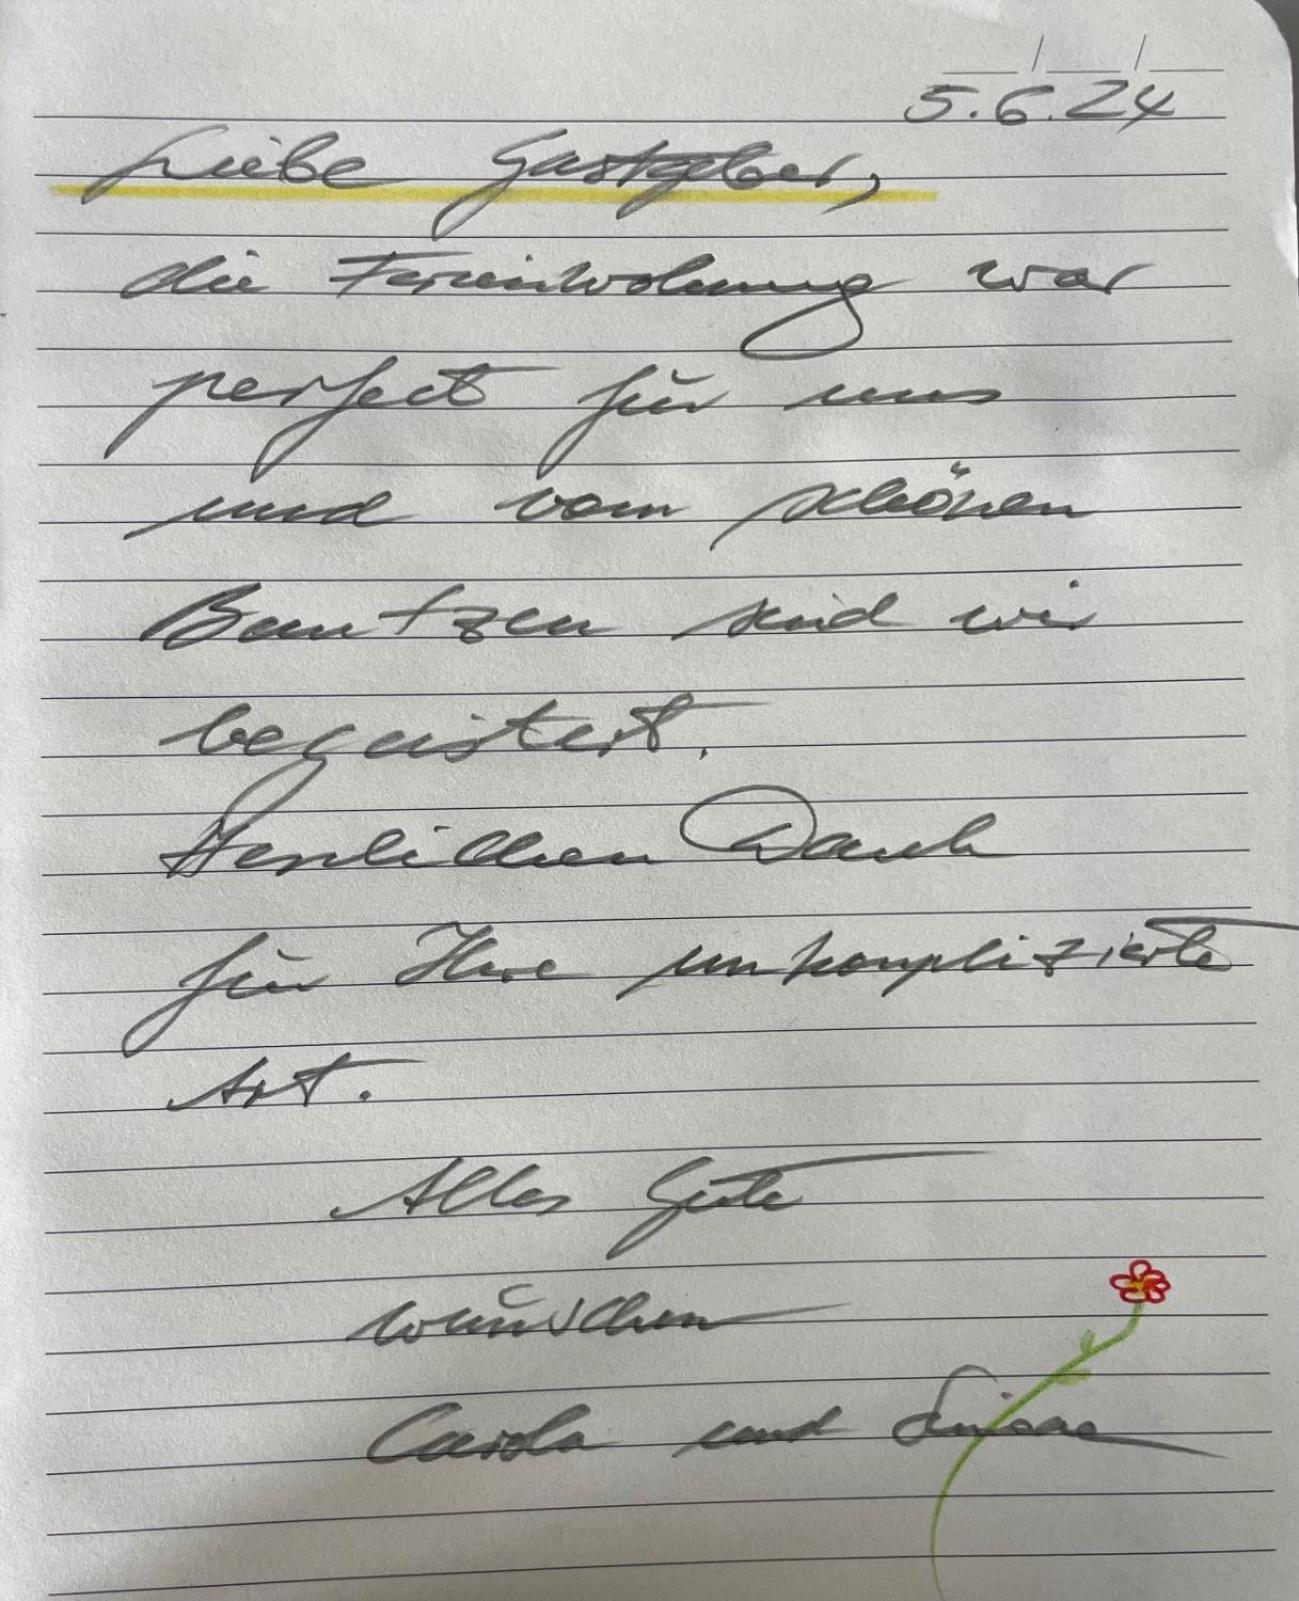 5.6.24
Liebe Gastgeber,
die Ferienwohnung war
perfect für uns
und vom schönen
Bautzen sind wir
begeistert.
Herzlichen Dank
für Ihre unkomplizierte
Art.
Alles Gute
wünschen
Carola und